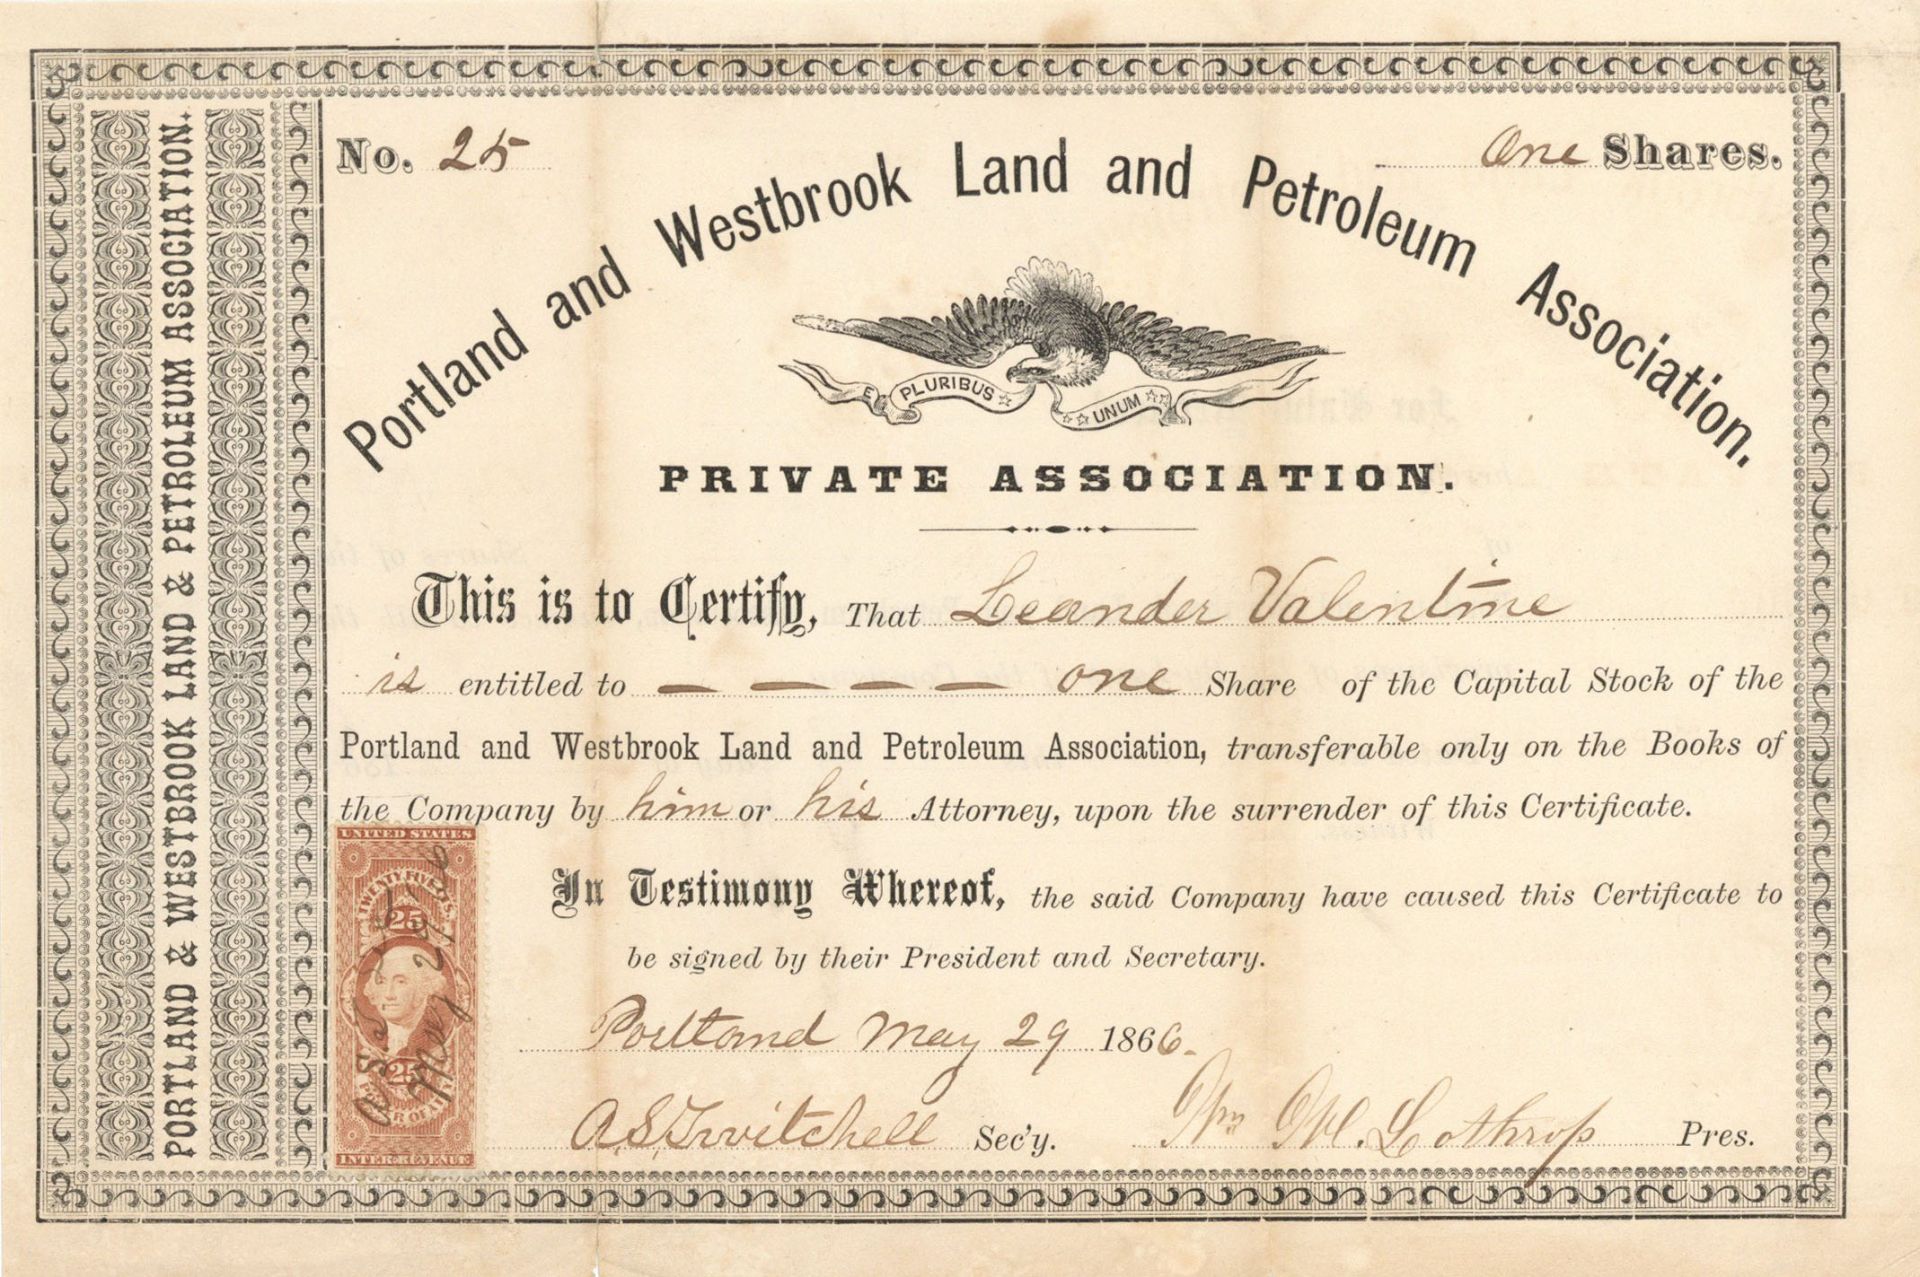 No. 25
One Shares.
Portland and Westbrook Land and Petroleum Association.
E PLURIBUS UNUM
PRIVATE ASSOCIATION.
This is to Certify, That Leander Valentine
is entitled to — — — — one Share of the Capital Stock of the
Portland and Westbrook Land and Petroleum Association, transferable only on the Books of
the Company by him or his Attorney, upon the surrender of this Certificate.
In Testimony Whereof, the said Company have caused this Certificate to
be signed by their President and Secretary.
Portland May 29 1866.
A.S. Twitchell Sec'y.
Wm M. Lothrop Pres.
PORTLAND & WESTBROOK LAND & PETROLEUM ASSOCIATION.
UNITED STATES
TWENTY FIVE CTS.
25
25
POWER OF ATT'Y
INTER. REVENUE
A.S.T.
May 29